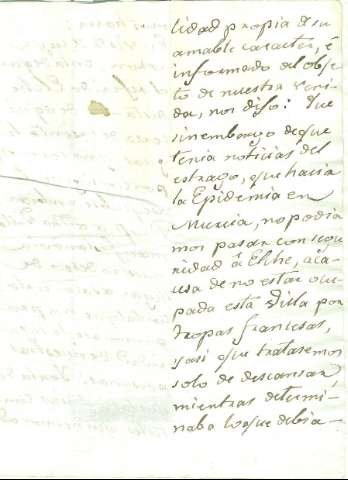 lidad propia de su
amable caracter, é
informado del obje-
to de nuestra veni-
da, nos dijo: Que
sinembargo de que
tenia noticias del
estrago, que hacia
la Epidemia en
Murcia, no podia
mos pasar con segu
ridad â Elche, áca-
usa de no estár ocu-
pada está Villa por
tropas francesas,
yasi que tratasemos
solo de descansar,
mientras determi-
naba loque debia-